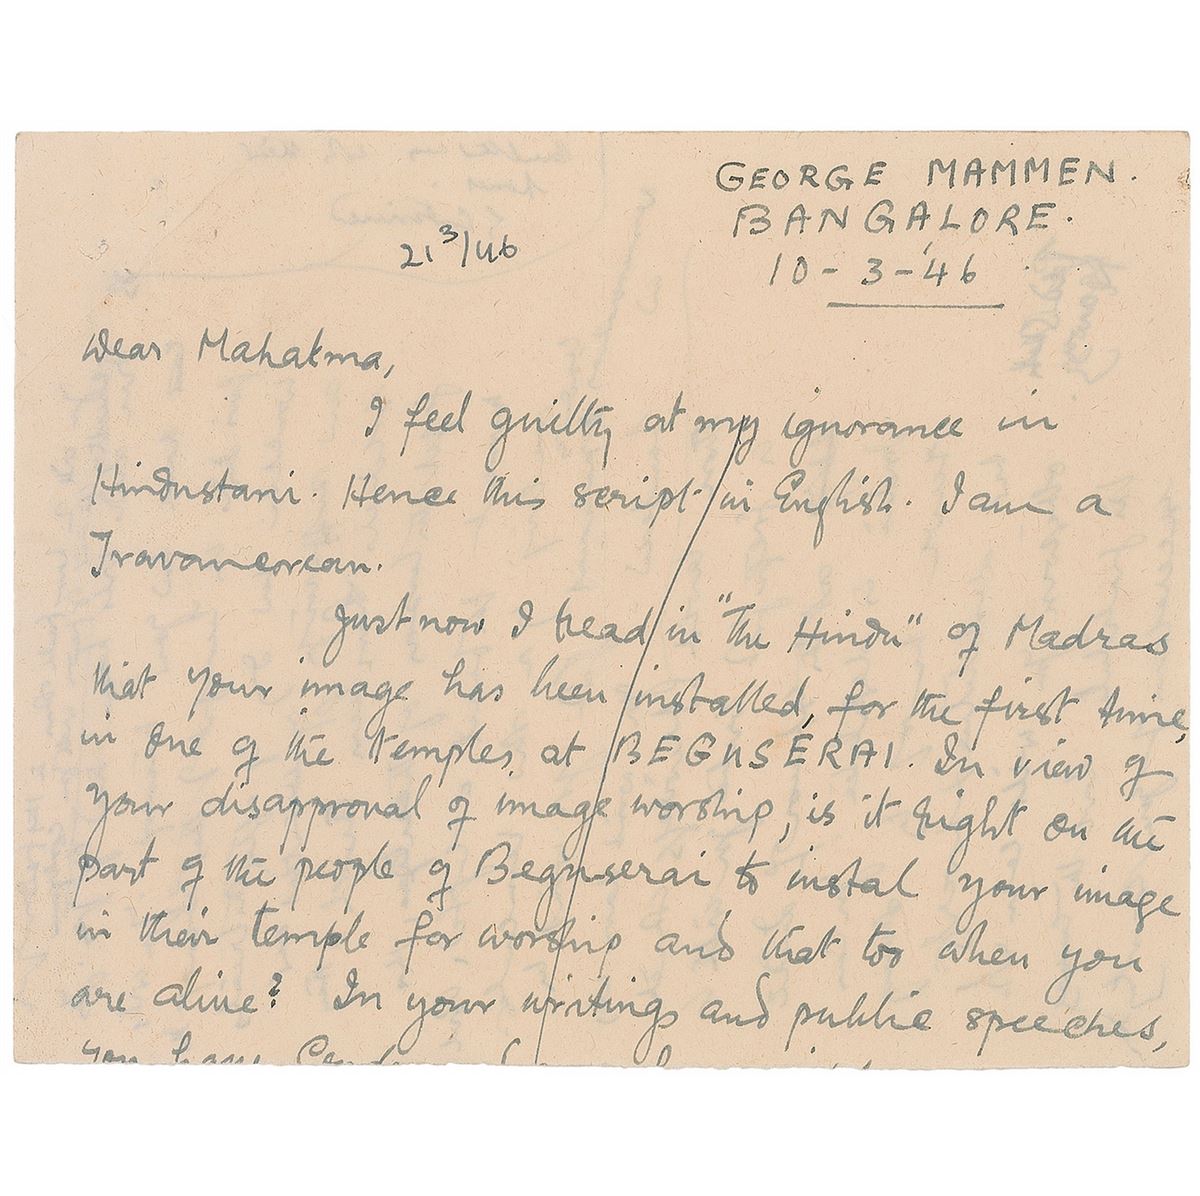 GEORGE MAMMEN.
BANGALORE.
21 3/46
10-3-46
Dear Mahatma,
I feel guilty at my ignorance in
Hindustani. Hence this script in English. I am a
Travancorean.
Just now I read in "The Hindu" of Madras
that your image has been installed, for the first time,
in one of the temples at BEGUSERAI. In view of
your disapproval of image worship, is it right on the
part of the people of Beguserai to instal your image
in their temple for worship and that too when you
are alive? In your writings and public speeches,
you have